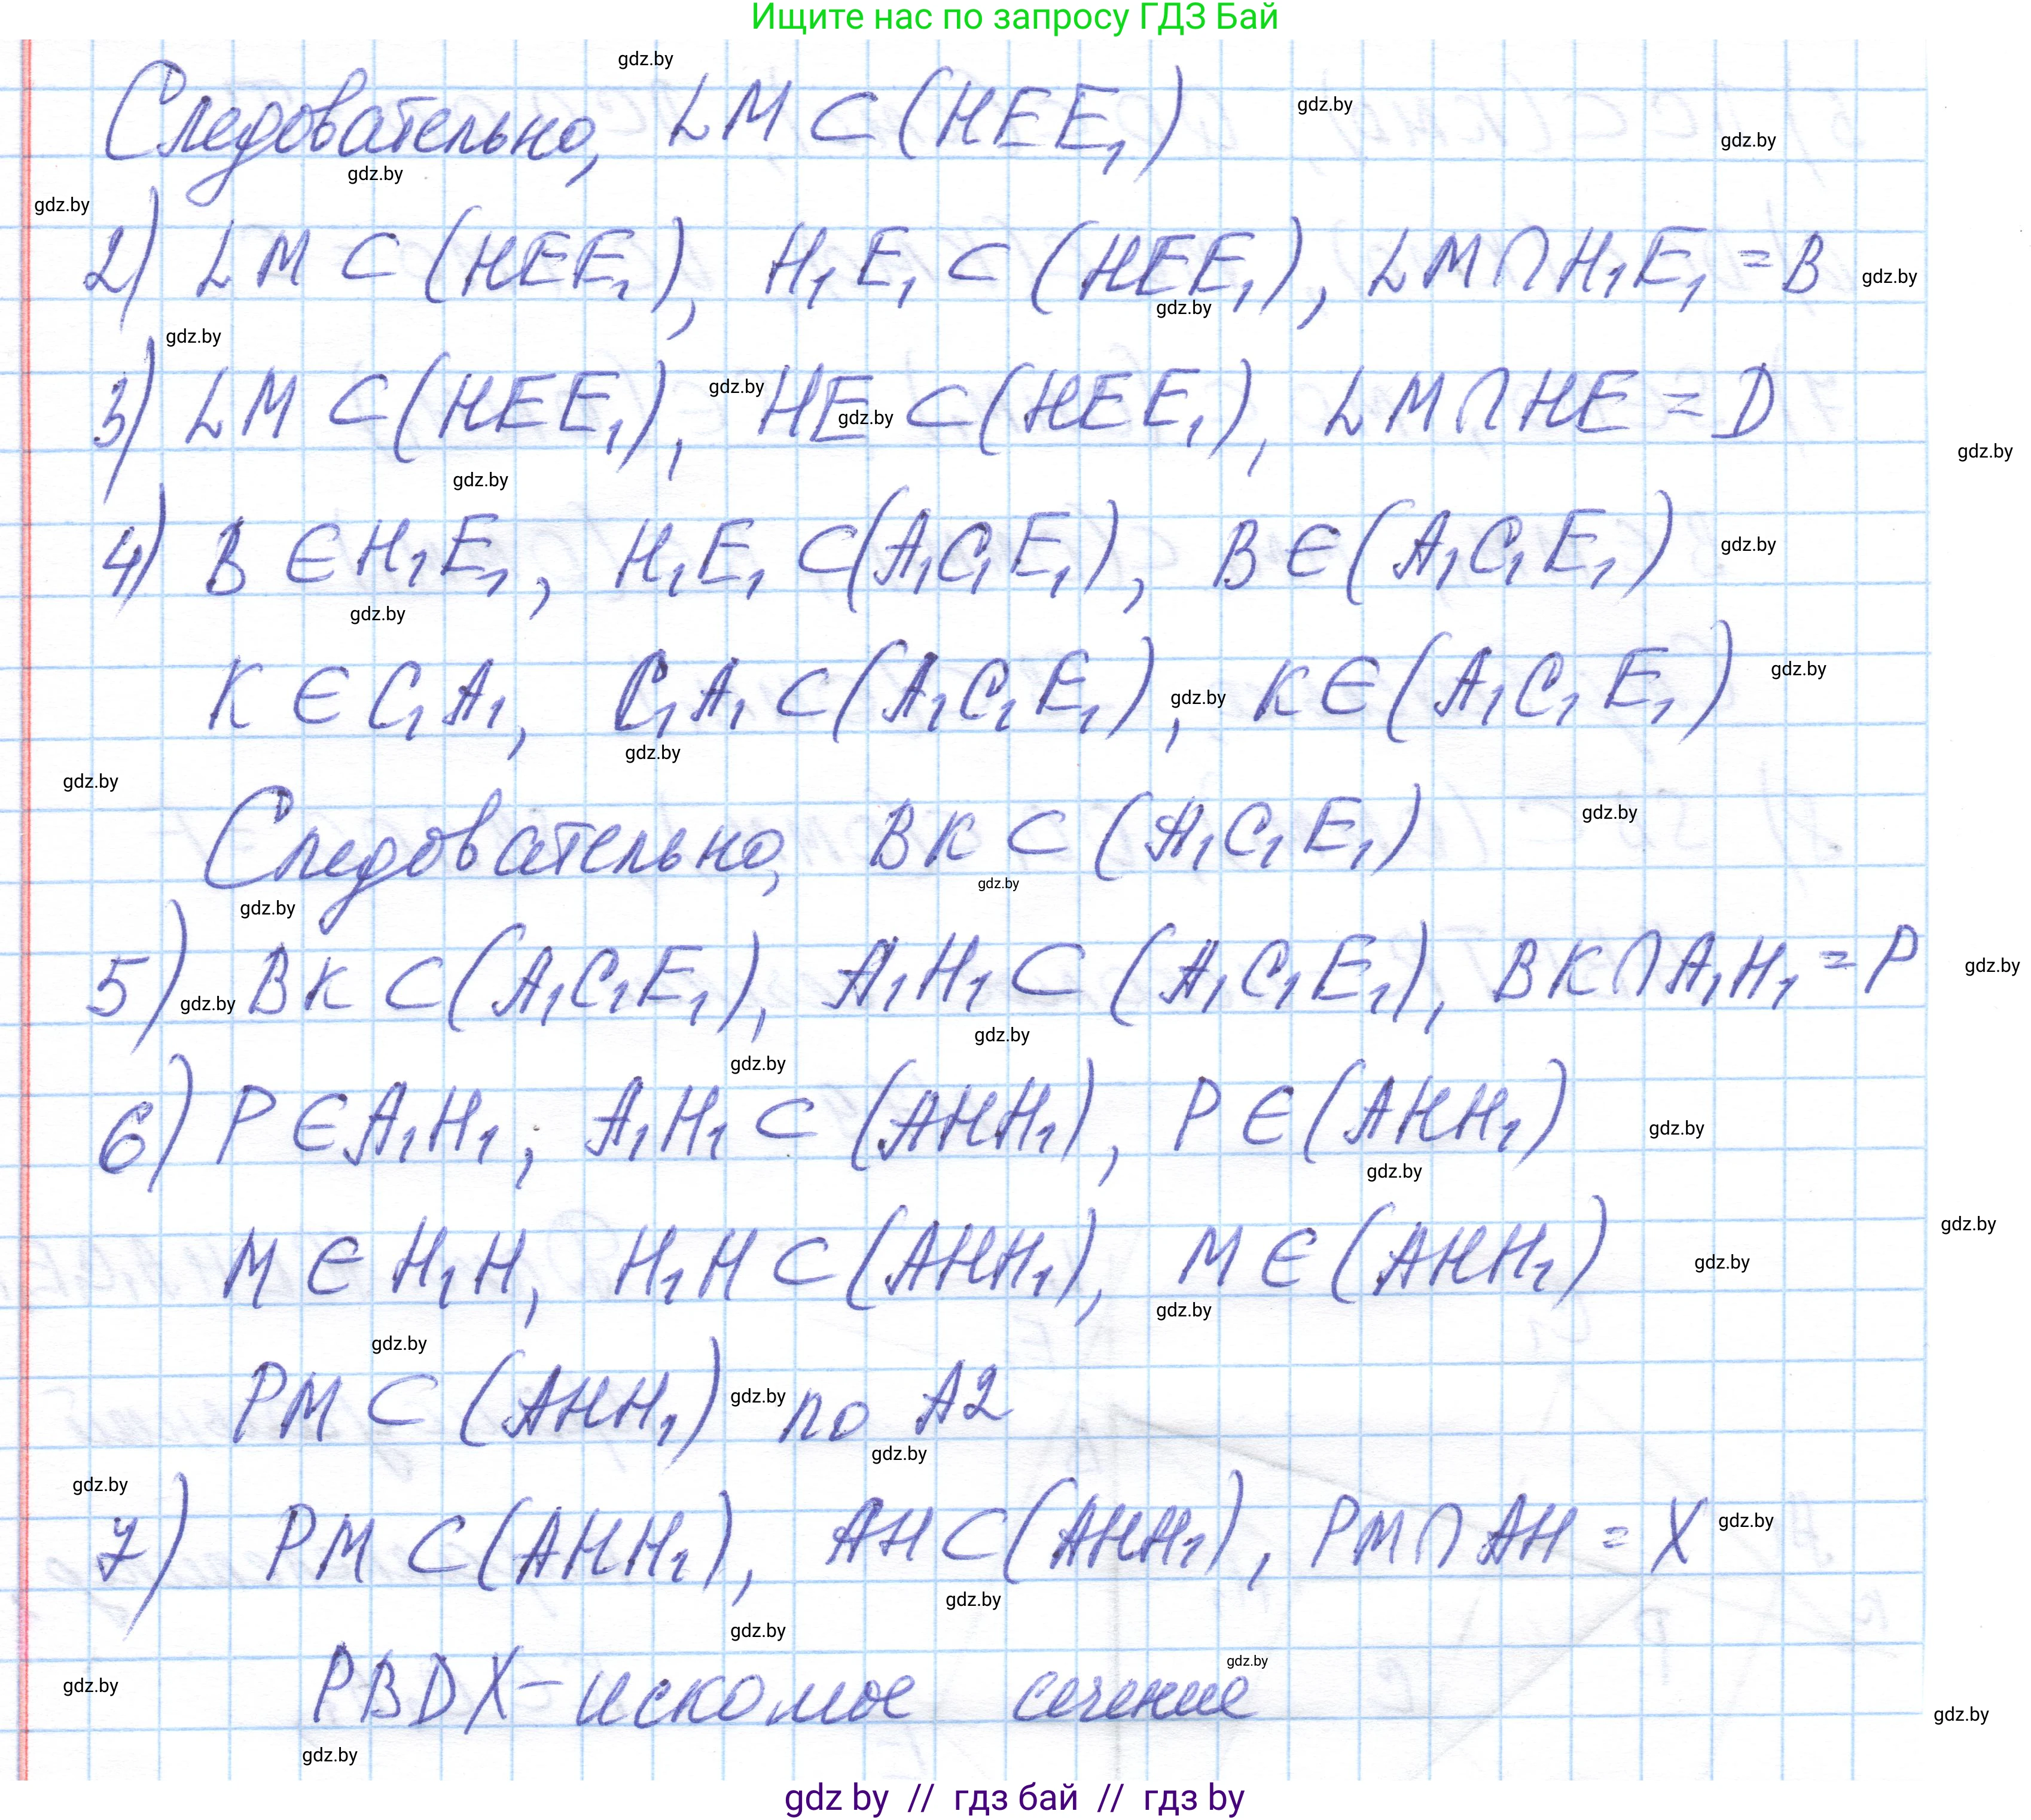 Ищите нас по запросу ГДЗ Бай
Следовательно, LM ⊂ (HEE₁)
2) LM ⊂ (HEE₁), H₁E₁ ⊂ (HEE₁), LM ∩ H₁E₁ = B
3) LM ⊂ (HEE₁), HE ⊂ (HEE₁), LM ∩ HE = D
4) B ∈ H₁E₁, H₁E₁ ⊂ (A₁C₁E₁), B ∈ (A₁C₁E₁)
K ∈ C₁A₁, C₁A₁ ⊂ (A₁C₁E₁), K ∈ (A₁C₁E₁)
Следовательно, BK ⊂ (A₁C₁E₁)
5) BK ⊂ (A₁C₁E₁), A₁H₁ ⊂ (A₁C₁E₁), BK ∩ A₁H₁ = P
6) P ∈ A₁H₁; A₁H₁ ⊂ (AHH₁), P ∈ (AHH₁)
M ∈ H₁H, H₁H ⊂ (AHH₁), M ∈ (AHH₁)
PM ⊂ (AHH₁) по A2
7) PM ⊂ (AHH₁), AH ⊂ (AHH₁), PM ∩ AH = X
PBDX - искомое сечение
gdz by // гдз бай // гдз by